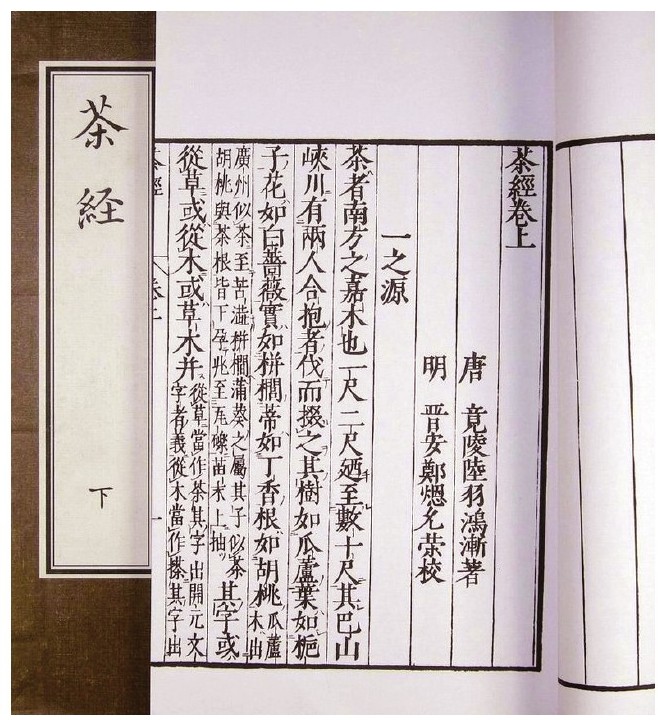 茶經卷上
唐 竟陵陸羽鴻漸著
明 晋安鄭熜允荣校
一之源
茶者南方之嘉木也一尺二尺廼至數十尺其巴山
峽川有兩人合抱者伐而掇之其樹如瓜蘆葉如梔
子花如白薔薇實如栟櫚蒂如丁香根如胡桃瓜蘆木出
廣州似茶至苦澁栟櫚蒲葵之屬其子似茶胡桃與茶根皆下孕兆至瓦礫苗木上抽其字或
從草或從木或草木并從草當作茶其字出開元文字者義從木當作搽其字出
茶經 卷上 一
茶経
下